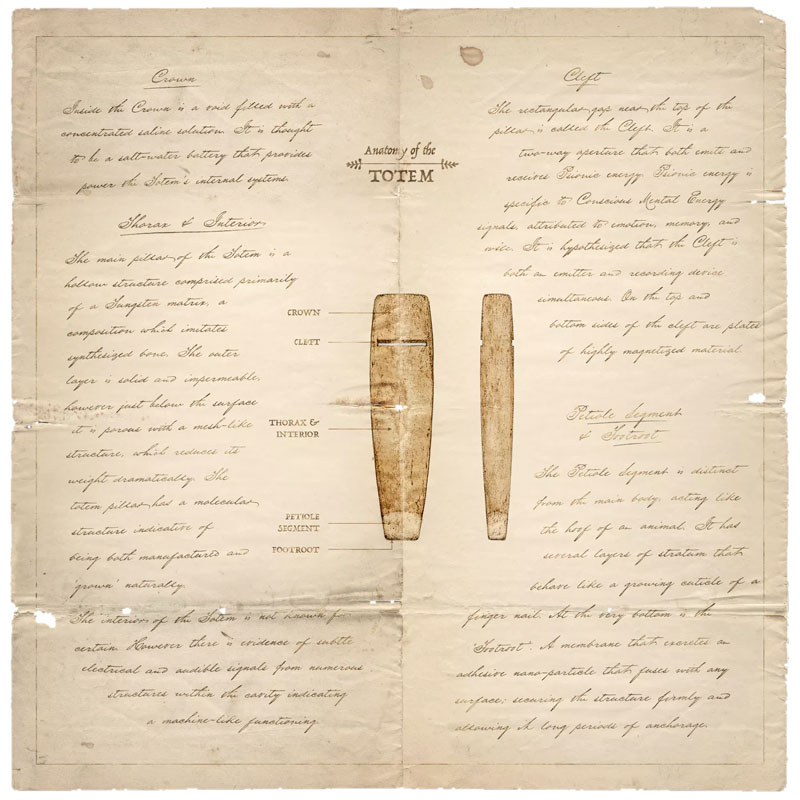 Anatomy of the
TOTEM
Crown
Inside the Crown is a void filled with a
concentrated saline solution. It is thought
to be a salt-water battery that provides
power the Totem's internal systems.
Thorax & Interior
The main pillar of the Totem is a
hollow structure comprised primarily
of a Tungsten matrix, a
composition which imitates
synthesized bone. The outer
layer is solid and impermeable,
however just below the surface
it is porous with a mesh-like
structure, which reduces its
weight dramatically. The
totem pillar has a molecular
structure indicative of
being both manufactured and
'grown' naturally.
The interior of the Totem is not known for
certain. However there is evidence of subtle
electrical and audible signals from numerous
structures within the cavity indicating
a machine-like functioning.
CROWN
CLEFT
THORAX &
INTERIOR
PETIOLE
SEGMENT
FOOTROOT
Cleft
The rectangular gap near the top of the
pillar is called the Cleft. It is a
two-way aperture that both emits and
receives Psionic energy. Psionic energy is
specific to Conscious Mental Energy
signals, attributed to emotion, memory, and
will. It is hypothesized that the Cleft is
both an emitter and recording device
simultaneous. On the top and
bottom sides of the cleft are plates
of highly magnetized material.
Petiole Segment
& Footroot
The Petiole Segment is distinct
from the main body, acting like
the hoof of an animal. It has
several layers of stratum that
behave like a growing cuticle of a
finger nail. At the very bottom is the
'Footroot'. A membrane that excretes an
adhesive nano-particle that fuses with any
surface; securing the structure firmly and
allowing it long periods of anchorage.